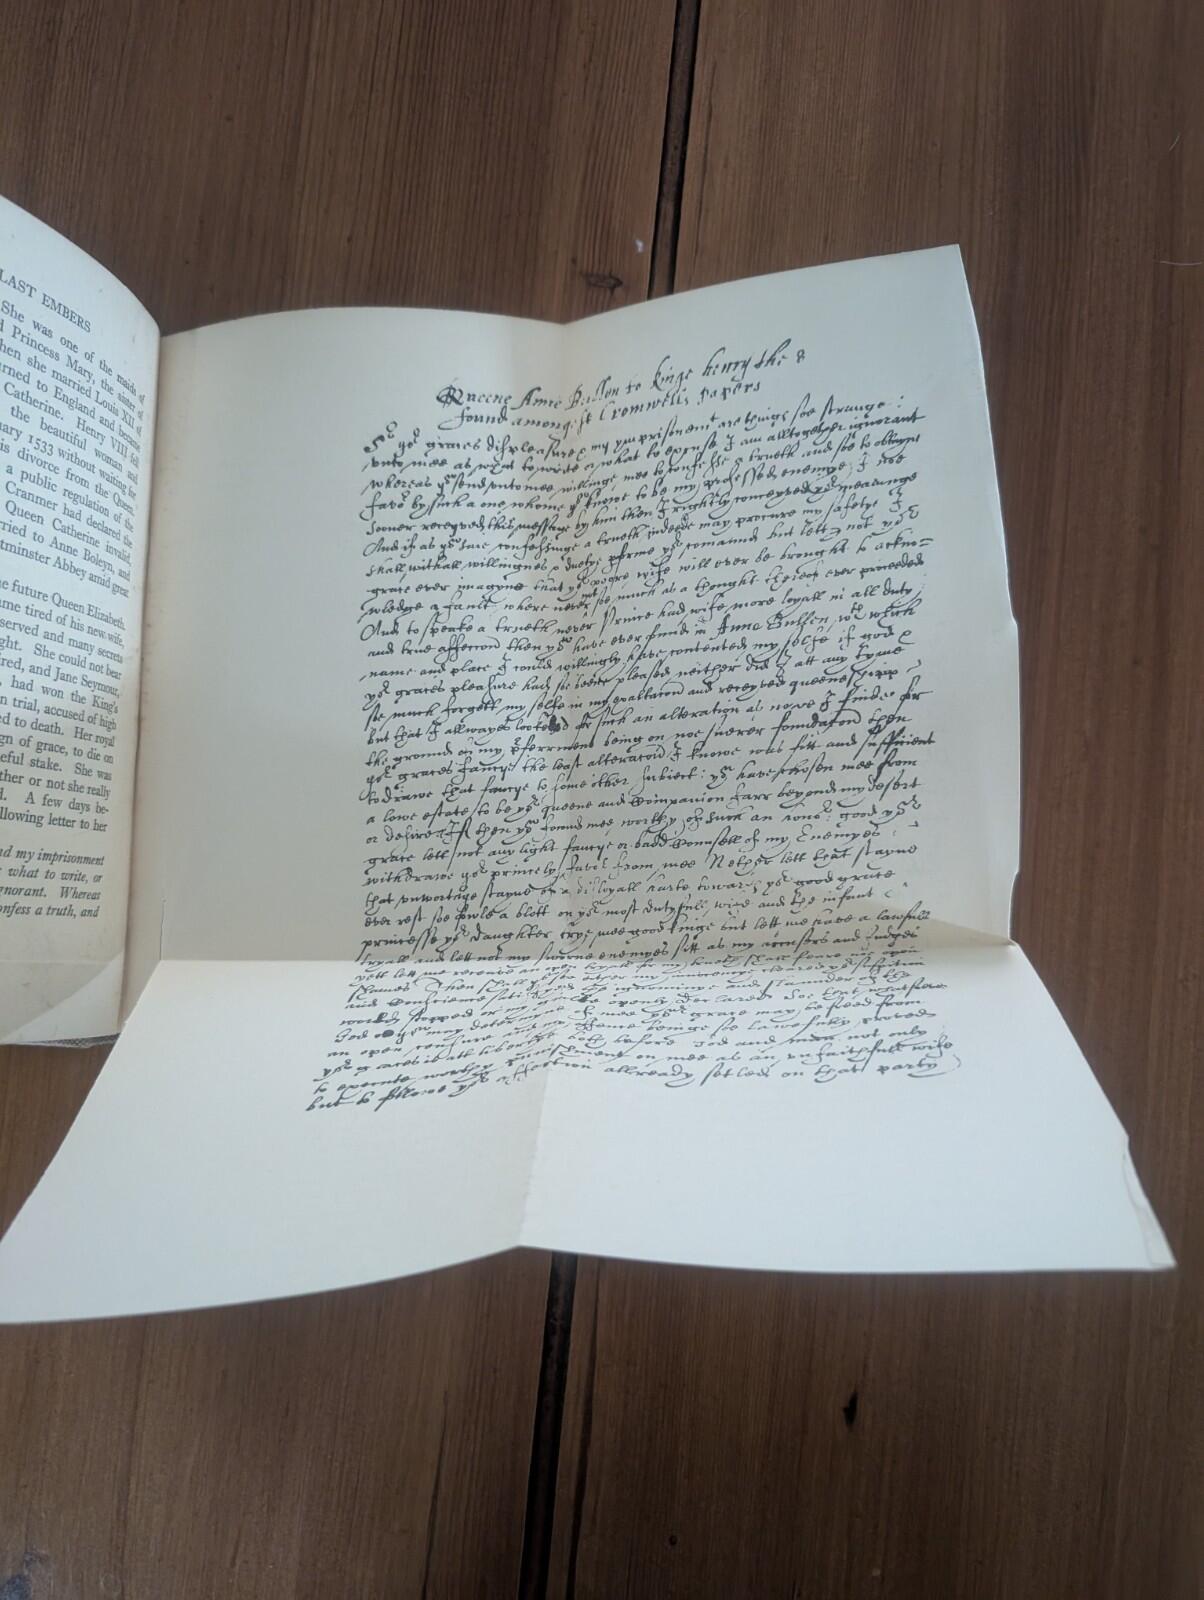 LAST EMBERS
She was one of the maids of
d Princess Mary, the sister of
hen she married Louis XII of
urned to England and became
Catherine. Henry VIII fell
the beautiful woman and
uary 1533 without waiting for
is divorce from the Queen.
a public regulation of the
Cranmer had declared the
Queen Catherine invalid,
rried to Anne Boleyn, and
tminster Abbey amid great
e future Queen Elizabeth.
ame tired of his new wife,
served and many secrets
ght. She could not bear
ired, and Jane Seymour,
had won the King's
n trial, accused of high
ed to death. Her royal
gn of grace, to die on
eful stake. She was
ther or not she really
d. A few days be-
llowing letter to her
nd my imprisonment
what to write, or
gnorant. Whereas
onfess a truth, and
Queene Anne Bullen to kinge henry the 8
found amongest Cromwells papers
Sr yor graces displeasure & my ymprisonment are thinges soe strange
vnto mee as what to write or what to excuse I am alltogether ignorant
whereas yu send vnto mee willinge mee to confesse a trueth and soe to obteyne
favor by such a one whome yu knowe to be my professed enemye; I noe
sooner receyved this message by him then I rightly conceyved yor meaninge
And if as yu saie confessinge a trueth indeede may procure my safetye I
shall withall willingnes & duetye pforme yor comaund but lett not yor
grace ever imagyne that yor poore wife will ever be brought to ackno=
wledge a fault where never not soe much as a thought thereof ever proceeded
And to speake a trueth never Prince had wife more loyall in all duty
and true affeccon then yu have ever found in Anne Bullen, wth which
name and place I could willingly have contented my selfe if god &
yor graces pleasure had soe beene pleased neither did I att any tyme
soe much forgett my selfe in my exaltacon and receyved queeneshipp
but that I allwayes looked for such an alteration as nowe I finde for
the ground on my pferrment being on noe suerer foundacon then
yor graces fancye the least alteracon I knowe was fitt and sufficient
to drawe that fancye to some other subiect: yu have chosen mee from
a lowe estate to be yor queene and Companion farr beyond my desert
or desire If then yu found mee worthy of such an honor good yor
grace lett not any light fancye or badd Counsell of my Enemyes
withdrawe yor princely favor from mee Nether lett that stayne
that vnworthye stayne of a disloyall harte towards yor good grace
ever rest soe fowle a blott on yor most dutyfull wife and the infant
princesse yor daughter trye mee good kinge but lett me have a lawfull
tryall and lett not my sworne enemyes sitt as my accusers and Judges
yett lett me receive an open tryall for my trueth shall feare noe open
shames Then shall yu see either my innocencye cleared yor suspition
and Conscience satisfyed the ignominye and slaunder of the
world stopped or my guilte openly declared Soe that whatsoever
God or yu may determyne of mee yor grace may be freed from
an open censure and my offence beinge soe lawfully proved
yor grace is att libertye both before God and man not only
to execute worthy punishment on mee as an vnfaithfull wife
but to followe yor affection allready setled on that party